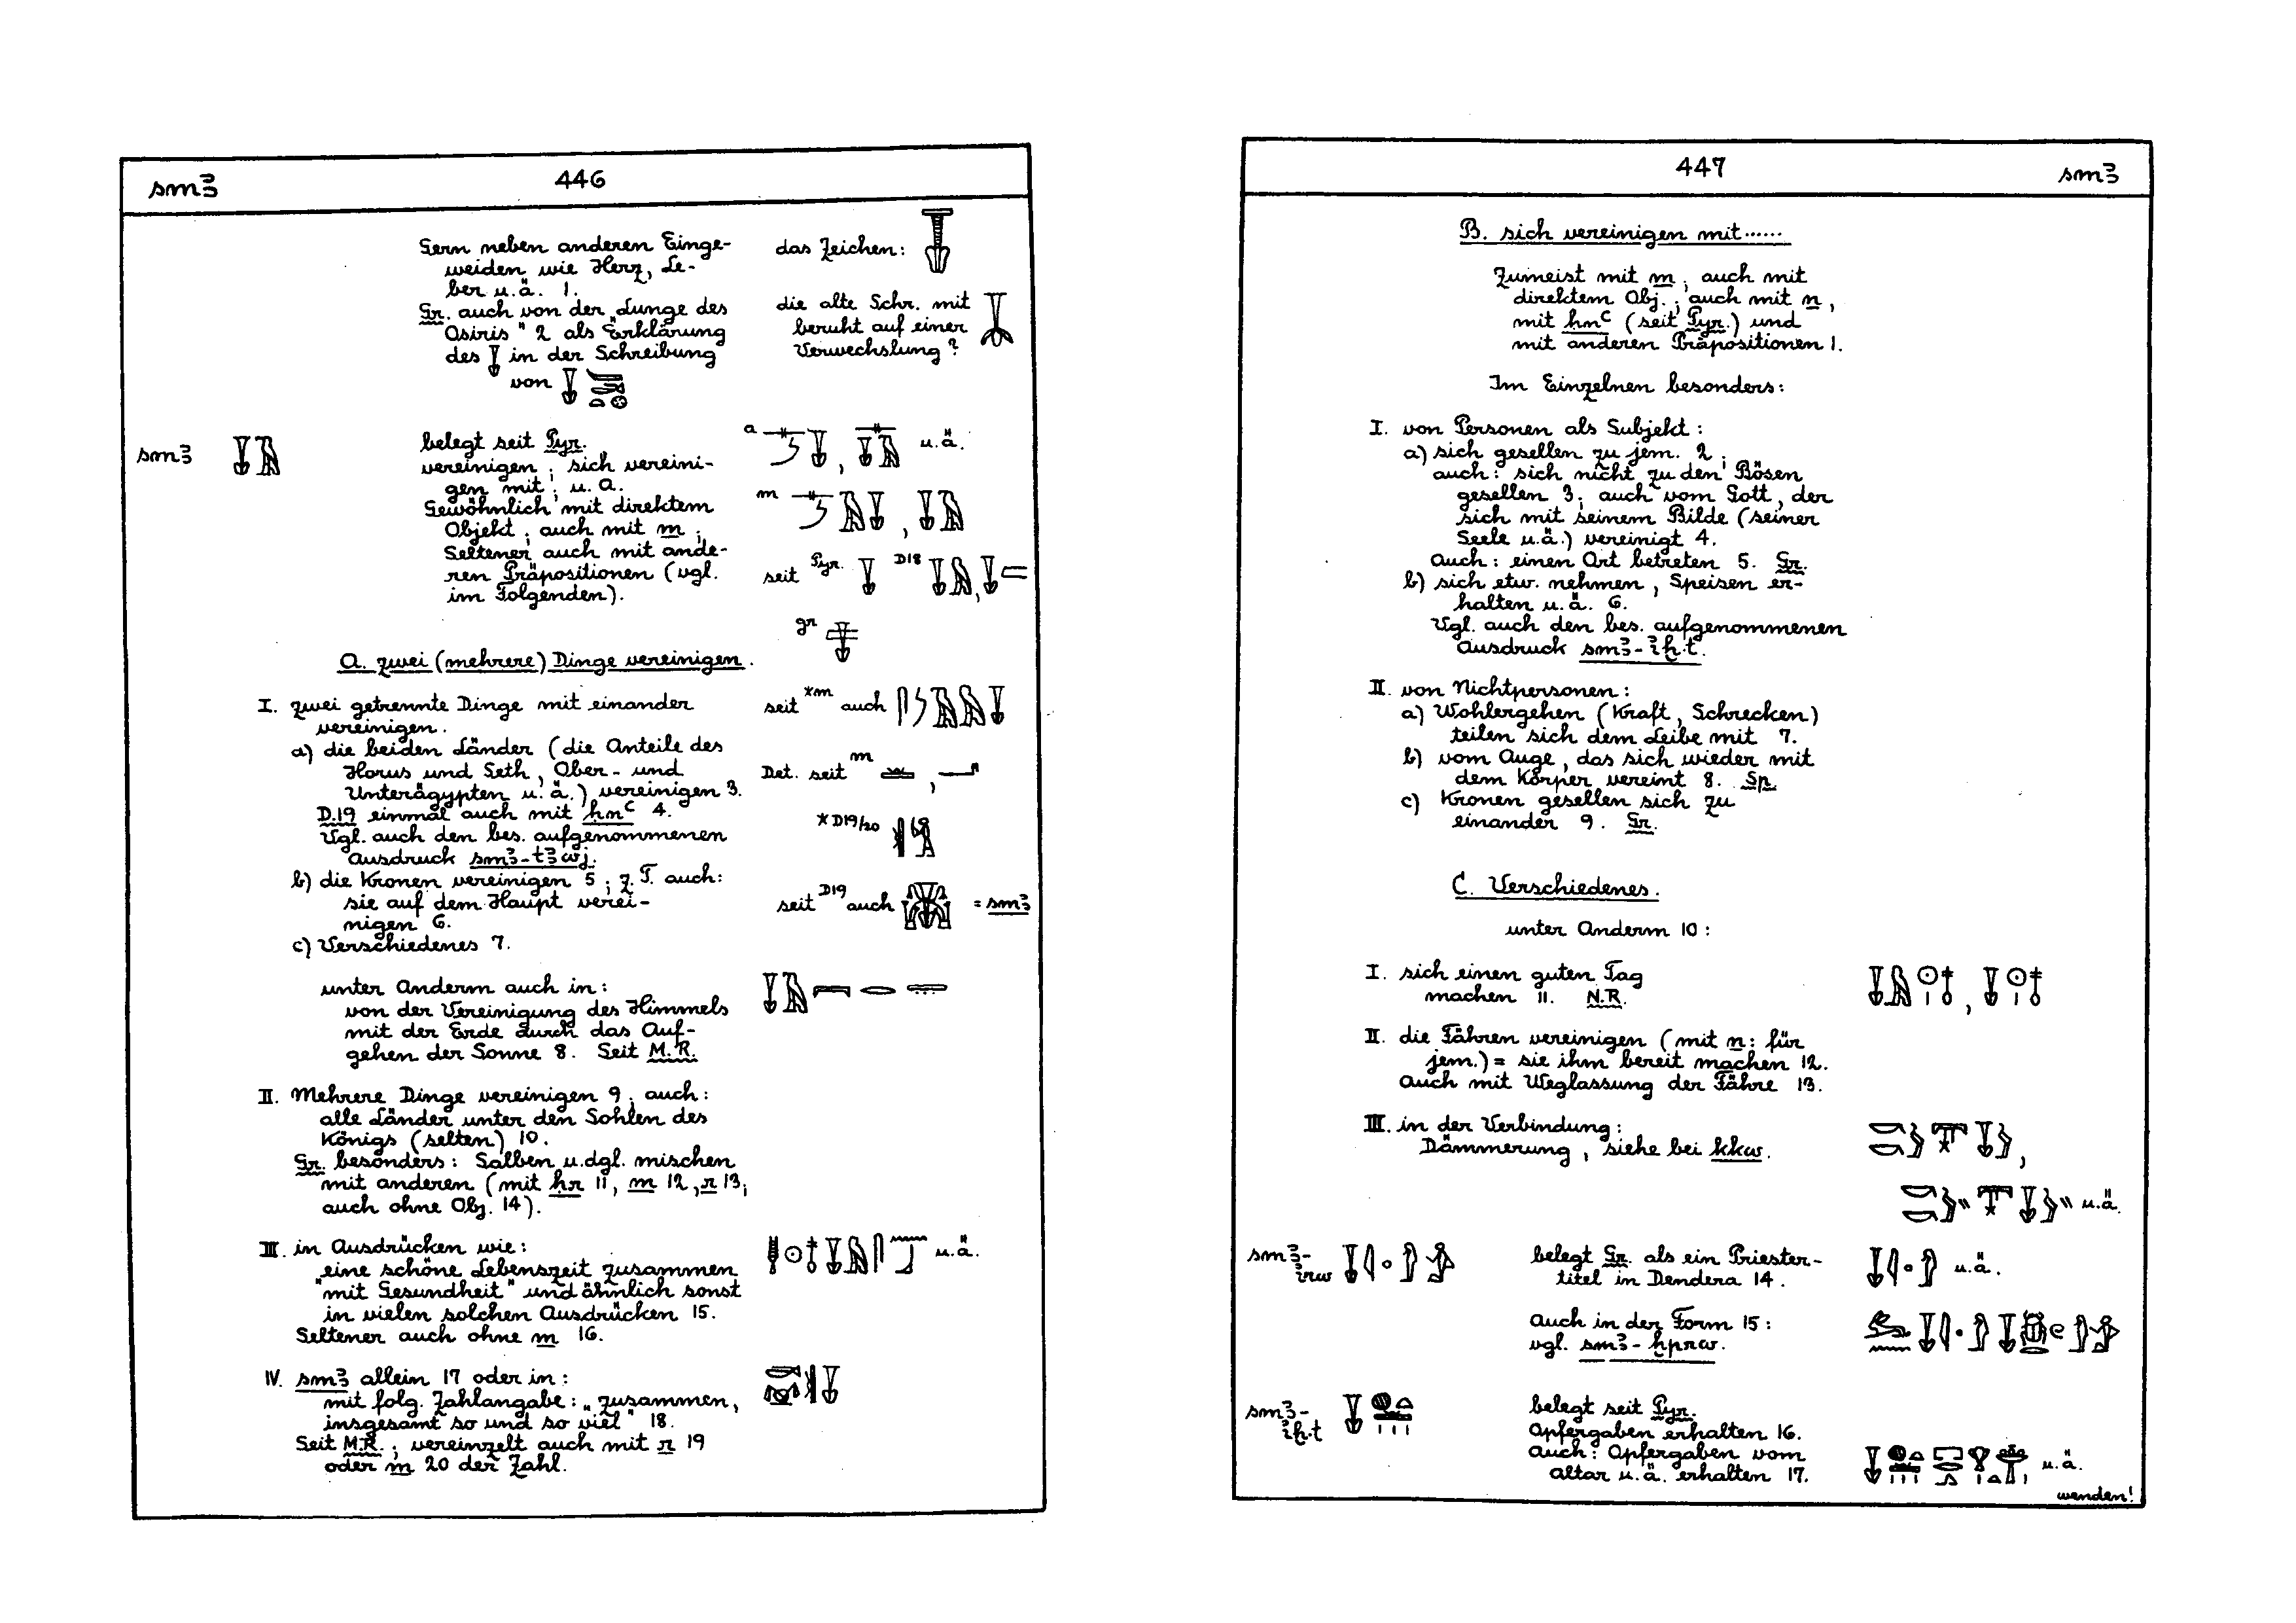 smꜣ 446
Gern neben anderen Einge-
weiden wie Herz, Le-
ber u.ä. 1.
Gr. auch von der „Lunge des
Osiris" 2 als Erklärung
des 𓄥 in der Schreibung
von 𓄥
das Zeichen:
die alte Schr. mit
beruht auf einer
Verwechslung?
smꜣ 𓄥𓅓
belegt seit Pyr.
vereinigen; sich vereini-
gen mit; u. a.
Gewöhnlich mit direktem
Objekt; auch mit m;
Seltener auch mit ande-
ren Präpositionen (vgl.
im Folgenden).
a , u.ä.
m ,
seit Pyr. D18 ,
gr
A. zwei (mehrere) Dinge vereinigen.
I. zwei getrennte Dinge mit einander
vereinigen.
a) die beiden Länder (die Anteile des
Horus und Seth, Ober- und
Unterägypten u.ä.) vereinigen 3.
D.19 einmal auch mit ḥnꜥ 4.
Vgl. auch den bes. aufgenommenen
Ausdruck smꜣ-tꜣwj.
b) die Kronen vereinigen 5; z. T. auch:
sie auf dem Haupt verei-
nigen 6.
c) Verschiedenes 7.
seit *m auch
Det. seit m ,
*D19/20
seit D19 auch = smꜣ
unter Anderm auch in:
von der Vereinigung des Himmels
mit der Erde durch das Auf-
gehen der Sonne 8. Seit M.R.
II. Mehrere Dinge vereinigen 9; auch:
alle Länder unter den Sohlen des
Königs (selten) 10.
Gr. besonders: Salben u.dgl. mischen
mit anderen (mit ḥr 11, m 12, r 13;
auch ohne Obj. 14).
III. in Ausdrücken wie: u.ä.
„eine schöne Lebenszeit zusammen
mit Gesundheit" und ähnlich sonst
in vielen solchen Ausdrücken 15.
Seltener auch ohne m 16.
IV. smꜣ allein 17 oder in:
mit folg. Zahlangabe: „zusammen,
insgesamt so und so viel" 18.
Seit M.R.; vereinzelt auch mit r 19
oder m 20 der Zahl.
447 smꜣ
B. sich vereinigen mit......
Zumeist mit m; auch mit
direktem Obj.; auch mit n,
mit ḥnꜥ (seit Pyr.) und
mit anderen Präpositionen 1.
Im Einzelnen besonders:
I. von Personen als Subjekt:
a) sich gesellen zu jem. 2;
auch: sich nicht zu den Bösen
gesellen 3; auch vom Gott, der
sich mit seinem Bilde (seiner
Seele u.ä.) vereinigt 4.
Auch: einen Ort betreten 5. Gr.
b) sich etw. nehmen, Speisen er-
halten u.ä. 6.
Vgl. auch den bes. aufgenommenen
Ausdruck smꜣ-iḫ.t.
II. von Nichtpersonen:
a) Wohlergehen (Kraft, Schrecken)
teilen sich dem Leibe mit 7.
b) vom Auge, das sich wieder mit
dem Körper vereint 8. Sp.
c) Kronen gesellen sich zu
einander 9. Gr.
C. Verschiedenes.
unter Anderm 10:
I. sich einen guten Tag
machen 11. N.R.
II. die Fähren vereinigen (mit n: für
jem.) = sie ihm bereit machen 12.
Auch mit Weglassung der Fähre 13.
III. in der Verbindung:
Dämmerung, siehe bei kkw.
u.ä.
smꜣ-
irw
belegt Gr. als ein Priester-
titel in Dendera 14.
u.ä.
auch in der Form 15:
vgl. smꜣ-ḫprw.
smꜣ-
iḫ.t
belegt seit Pyr.
Opfergaben erhalten 16.
auch: Opfergaben vom
Altar u.ä. erhalten 17.
u.ä.
wenden!